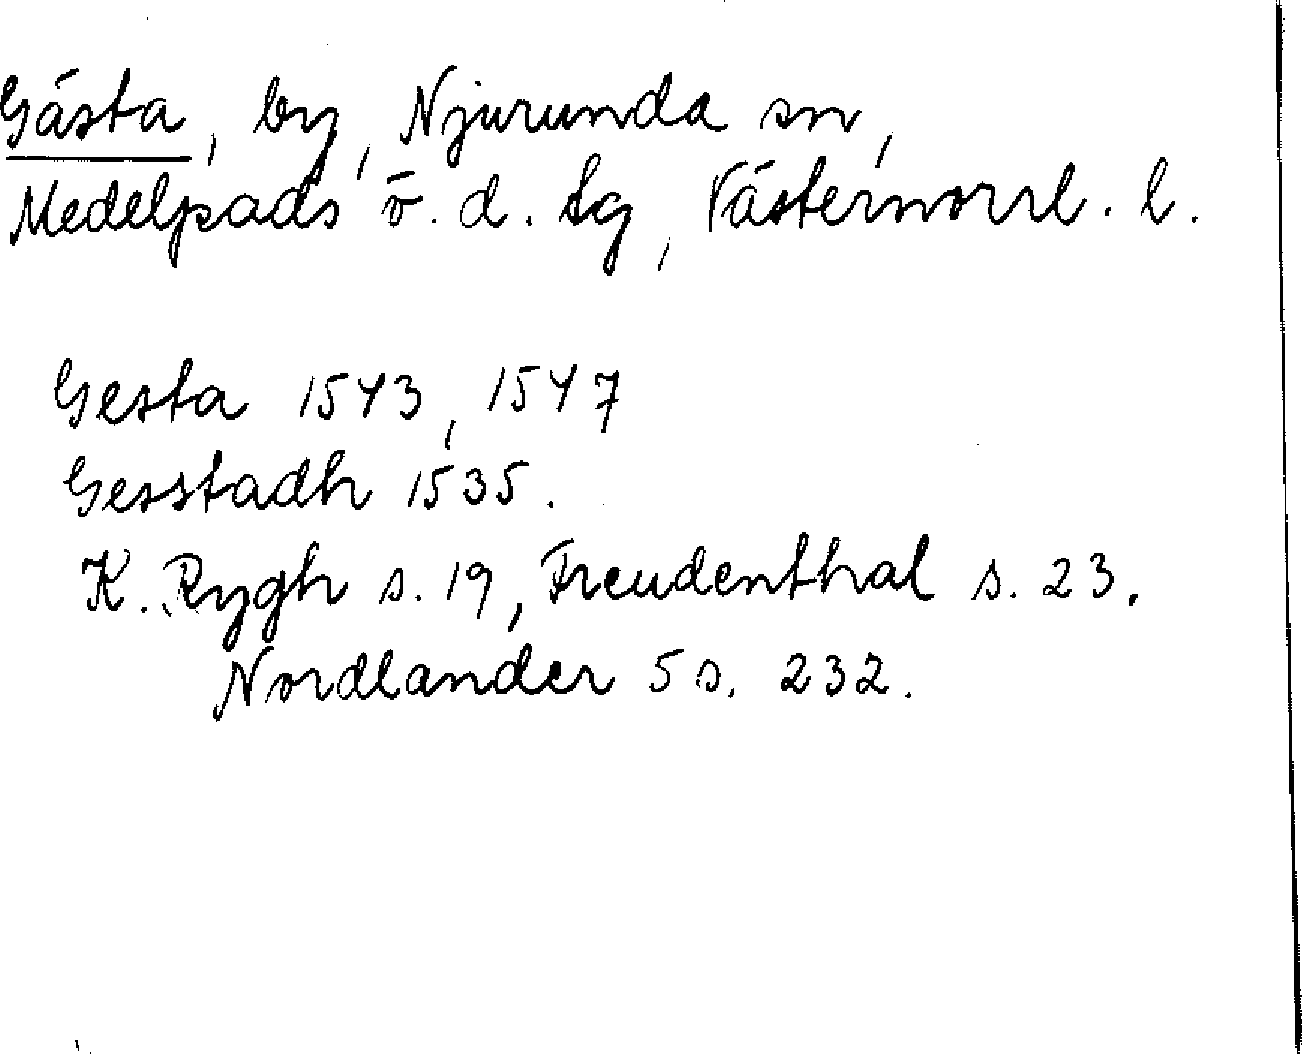 Gästa, by, Njurunda sn,
Medelpads ö. d. tg, Västernorrl. l.
Gesta 1543, 1547
Gesstadh 1535.
K. Rygh s. 19, Freudenthal s. 23.
Nordlander 5 s. 232.